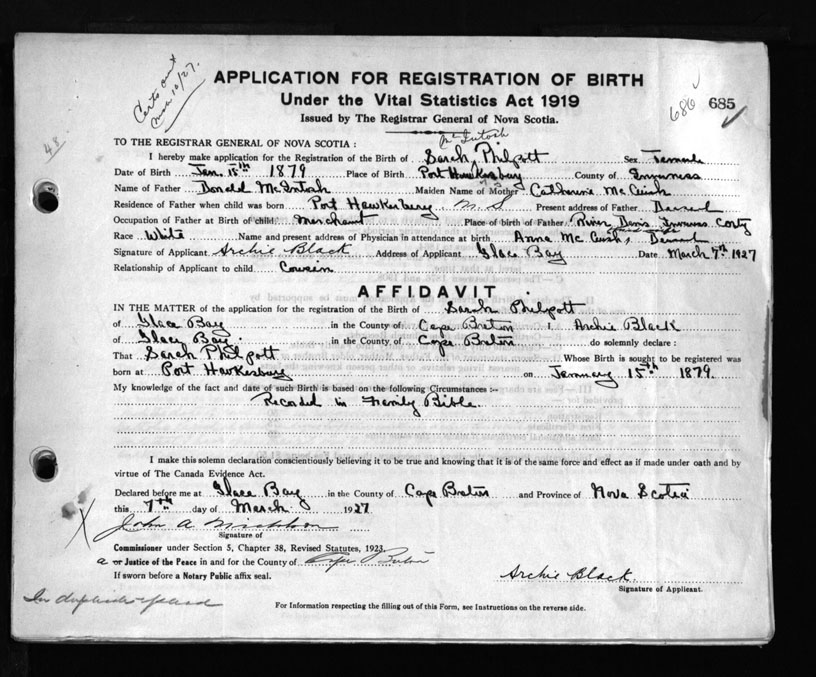 Certs out
Mar 10/27.
48
APPLICATION FOR REGISTRATION OF BIRTH
Under the Vital Statistics Act 1919
686 685
Issued by The Registrar General of Nova Scotia.
McIntosh
TO THE REGISTRAR GENERAL OF NOVA SCOTIA :
I hereby make application for the Registration of the Birth of Sarah Philpott Sex Female
Date of Birth Jan. 15th 1879 Place of Birth Port Hawkesbury County of Inverness
Name of Father Donald McIntosh Maiden Name of Mother Catherine McCuish
Residence of Father when child was born Port Hawkesbury N. S Present address of Father Deceased
Occupation of Father at Birth of child Merchant Place of birth of Father River Denis Inverness Conty
Race White Name and present address of Physician in attendance at birth Anna McCuish, Deceased
Signature of Applicant Archie Black Address of Applicant Glace Bay Date March 7th 1927
Relationship of Applicant to child Cousin
AFFIDAVIT
IN THE MATTER of the application for the registration of the Birth of Sarah Philpott
of Glace Bay in the County of Cape Breton I, Archie Black
of Glace Bay in the County of Cape Breton do solemnly declare :
That Sarah Philpott Whose Birth is sought to be registered was
born at Port Hawkesbury on January 15th 1879.
My knowledge of the fact and date of such Birth is based on the following Circumstances :—
Recorded in Family Bible.
I make this solemn declaration conscientiously believing it to be true and knowing that it is of the same force and effect as if made under oath and by
virtue of The Canada Evidence Act.
Declared before me at Glace Bay in the County of Cape Breton and Province of Nova Scotia
this 7th day of March 1927
X John A
Signature of
Commissioner under Section 5, Chapter 38, Revised Statutes, 1923.
a or Justice of the Peace in and for the County of Cape Breton
If sworn before a Notary Public affix seal.
Archie Black
Signature of Applicant.
In duplicate
For Information respecting the filling out of this Form, see Instructions on the reverse side.